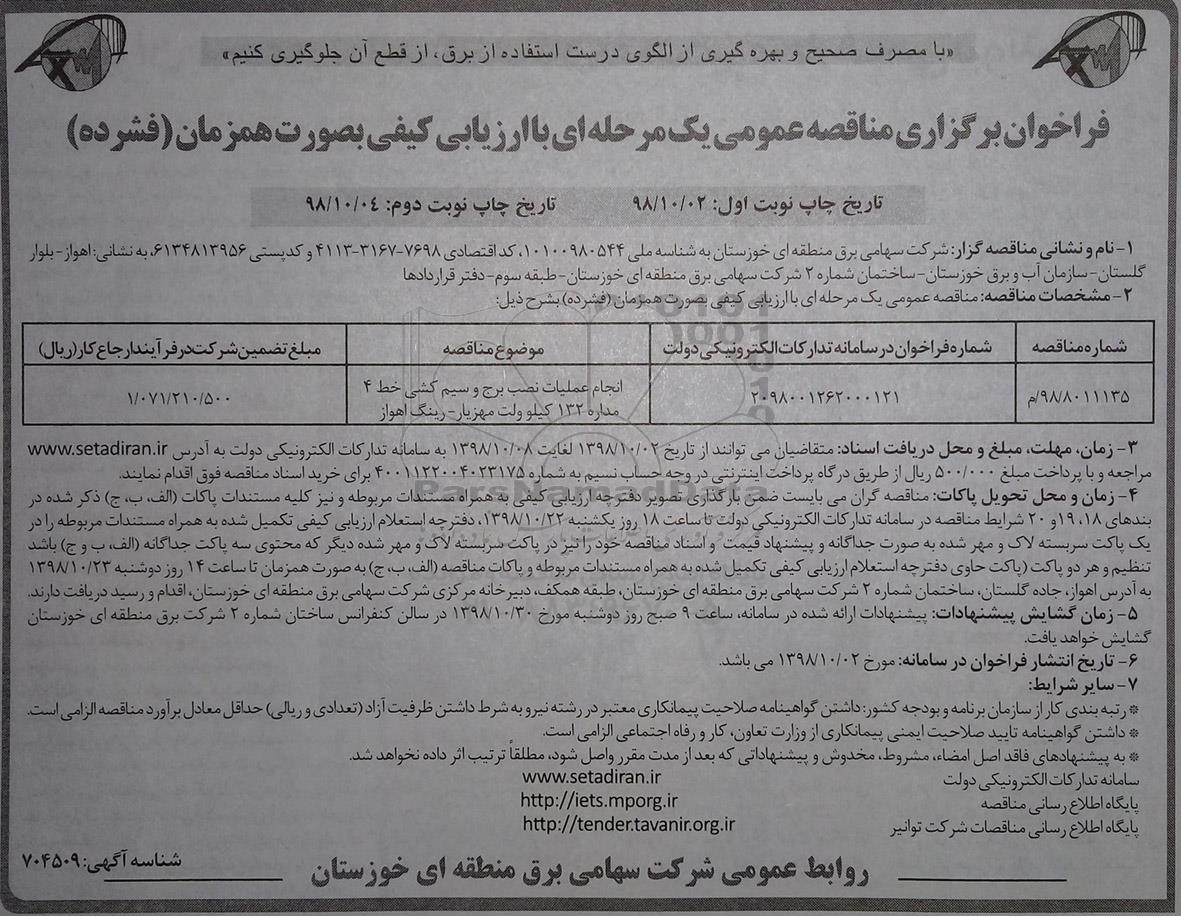 «با مصرف صحیح و بهره گیری از الگوی درست استفاده از برق، از قطع آن جلوگیری کنیم»
فراخوان برگزاری مناقصه عمومی یک مرحله ای با ارزیابی کیفی بصورت همزمان (فشرده)
تاریخ چاپ نوبت اول: ۹۸/۱۰/۰۲ تاریخ چاپ نوبت دوم: ۹۸/۱۰/۰۴
۱- نام و نشانی مناقصه گزار: شرکت سهامی برق منطقه ای خوزستان به شناسه ملی ۱۰۱۰۰۹۸۰۵۴۴، کد اقتصادی ۷۶۹۸-۳۱۶۷-۴۱۱۳ و کدپستی ۶۱۳۴۸۱۳۹۵۶، به نشانی: اهواز- بلوار
گلستان- سازمان آب و برق خوزستان- ساختمان شماره ۲ شرکت سهامی برق منطقه ای خوزستان- طبقه سوم- دفتر قراردادها
۲- مشخصات مناقصه: مناقصه عمومی یک مرحله ای با ارزیابی کیفی بصورت همزمان (فشرده) بشرح ذیل:
شماره مناقصه شماره فراخوان در سامانه تدارکات الکترونیکی دولت موضوع مناقصه مبلغ تضمین شرکت در فرآیند ارجاع کار (ریال)
۹۸/۸۰۱۱۱۳۵/م ۲۰۹۸۰۰۱۲۶۲۰۰۰۱۲۱ انجام عملیات نصب برج و سیم کشی خط ۴ ۱/۰۷۱/۲۱۰/۵۰۰
مداره ۱۳۲ کیلو ولت مهزیار- رینگ اهواز
۳- زمان، مهلت، مبلغ و محل دریافت اسناد: متقاضیان می توانند از تاریخ ۱۳۹۸/۱۰/۰۲ لغایت ۱۳۹۸/۱۰/۰۸ به سامانه تدارکات الکترونیکی دولت به آدرس www.setadiran.ir
مراجعه و با پرداخت مبلغ ۵۰۰/۰۰۰ ریال از طریق درگاه پرداخت اینترنتی در وجه حساب نسیم به شماره ۴۰۰۱۱۲۲۰۰۴۰۲۳۱۷۵ برای خرید اسناد مناقصه فوق اقدام نمایند.
۴- زمان و محل تحویل پاکات: مناقصه گران می بایست ضمن بارگذاری تصویر دفترچه ارزیابی کیفی به همراه مستندات مربوطه و نیز کلیه مستندات پاکات (الف، ب، ج) ذکر شده در
بندهای ۱۸، ۱۹و ۲۰ شرایط مناقصه در سامانه تدارکات الکترونیکی دولت تا ساعت ۱۸ روز یکشنبه ۱۳۹۸/۱۰/۲۲، دفترچه استعلام ارزیابی کیفی تکمیل شده به همراه مستندات مربوطه را در
یک پاکت سربسته لاک و مهر شده به صورت جداگانه و پیشنهاد قیمت و اسناد مناقصه خود را نیز در پاکت سربسته لاک و مهر شده دیگر که محتوی سه پاکت جداگانه (الف، ب و ج) باشد
تنظیم و هر دو پاکت (پاکت حاوی دفترچه استعلام ارزیابی کیفی تکمیل شده به همراه مستندات مربوطه و پاکات مناقصه (الف، ب، ج) به صورت همزمان تا ساعت ۱۴ روز دوشنبه ۱۳۹۸/۱۰/۲۳
به آدرس اهواز، جاده گلستان، ساختمان شماره ۲ شرکت سهامی برق منطقه ای خوزستان، طبقه همکف، دبیرخانه مرکزی شرکت سهامی برق منطقه ای خوزستان، اقدام و رسید دریافت دارند.
۵- زمان گشایش پیشنهادات: پیشنهادات ارائه شده در سامانه، ساعت ۹ صبح روز دوشنبه مورخ ۱۳۹۸/۱۰/۳۰ در سالن کنفرانس ساختان شماره ۲ شرکت برق منطقه ای خوزستان
گشایش خواهد یافت.
۶- تاریخ انتشار فراخوان در سامانه: مورخ ۱۳۹۸/۱۰/۰۲ می باشد.
۷- سایر شرایط:
* رتبه بندی کار از سازمان برنامه و بودجه کشور: داشتن گواهینامه صلاحیت پیمانکاری معتبر در رشته نیرو به شرط داشتن ظرفیت آزاد (تعدادی و ریالی) حداقل معادل برآورد مناقصه الزامی است.
* داشتن گواهینامه تایید صلاحیت ایمنی پیمانکاری از وزارت تعاون، کار و رفاه اجتماعی الزامی است.
* به پیشنهادهای فاقد اصل امضاء، مشروط، مخدوش و پیشنهاداتی که بعد از مدت مقرر واصل شود، مطلقاً ترتیب اثر داده نخواهد شد.
سامانه تدارکات الکترونیکی دولت www.setadiran.ir
پایگاه اطلاع رسانی مناقصه http://iets.mporg.ir
پایگاه اطلاع رسانی مناقصات شرکت توانیر http://tender.tavanir.org.ir
شناسه آگهی: ۷۰۴۵۰۹
روابط عمومی شرکت سهامی برق منطقه ای خوزستان
ParsNamadData